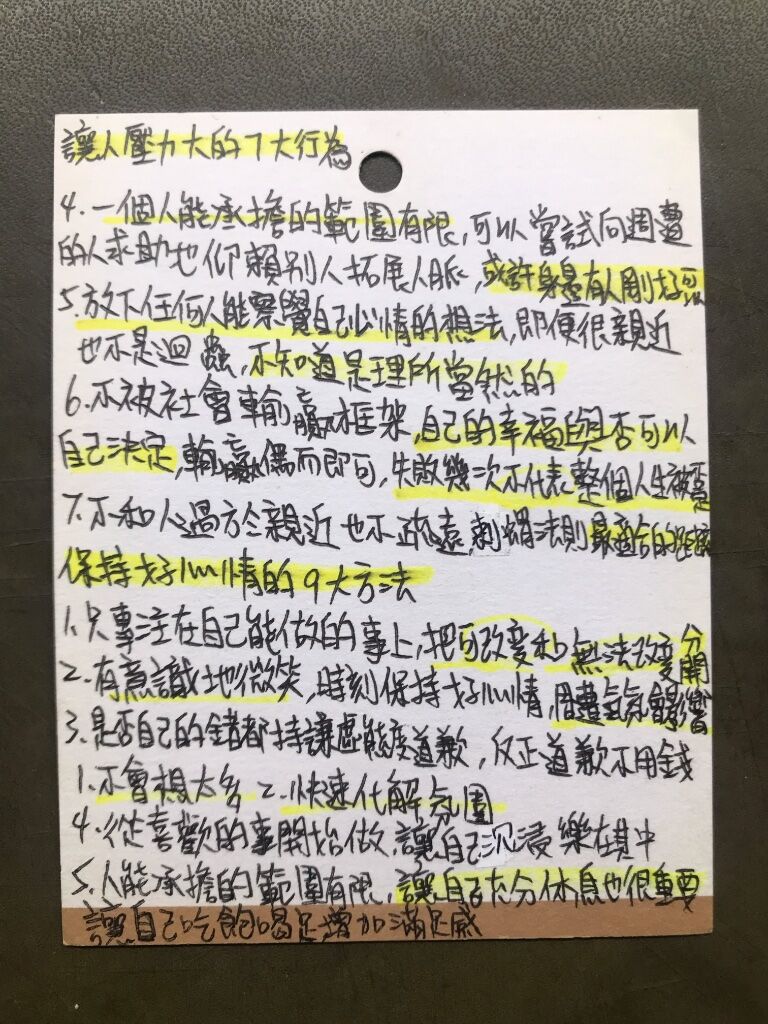 讓人壓力大的7大行為
4.一個人能承擔的範圍有限,可以嘗試向週遭
的人求助地仰賴別人拓展人脈,或許身邊有人剛好可以
5.放下任何人能察覺自己心情的想法,即便很親近
也不是迴蟲,不知道是理所當然的
6.不被社會輸贏框架,自己的幸福與否可以
自己決定,輸贏偶而即可,失敗幾次不代表整個人生被否定
7.不和人過於親近也不疏遠,刺蝟法則最適合的距離
保持好心情的9大方法
1.只專注在自己能做的事上,把可改變和無法改變分開
2.有意識地微笑,時刻保持好心情,周遭氣氛會影響
3.是否自己的錯都持謙虛態度道歉,反正道歉不用錢
1.不會想太多 2.快速化解氛圍
4.從喜歡的事開始做,讓自己沉浸樂在其中
5.人能承擔的範圍有限,讓自己充分休息也很重要
讓自己吃飽喝足增加滿足感